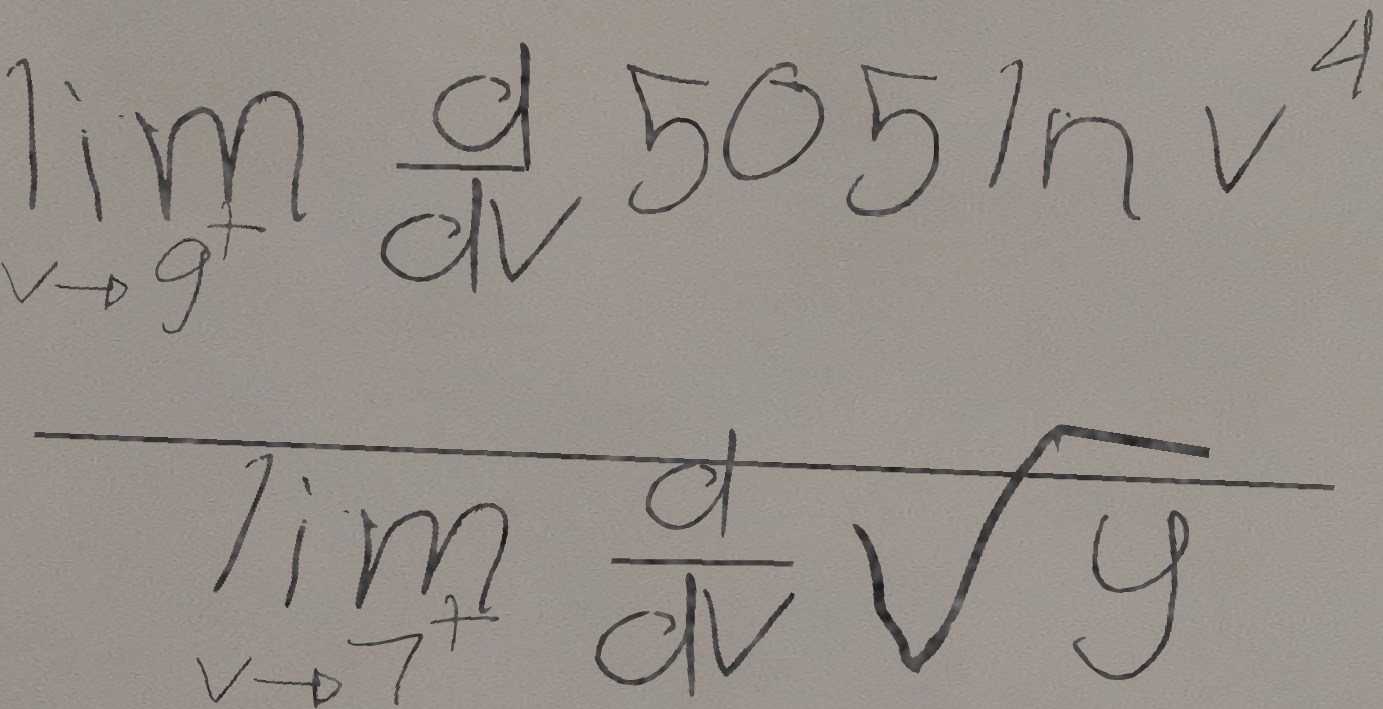 \frac{\lim_{v \to 9^+} \frac{d}{dv} 505 \ln v^4}{\lim_{v \to 7^+} \frac{d}{dv} \sqrt{y}}